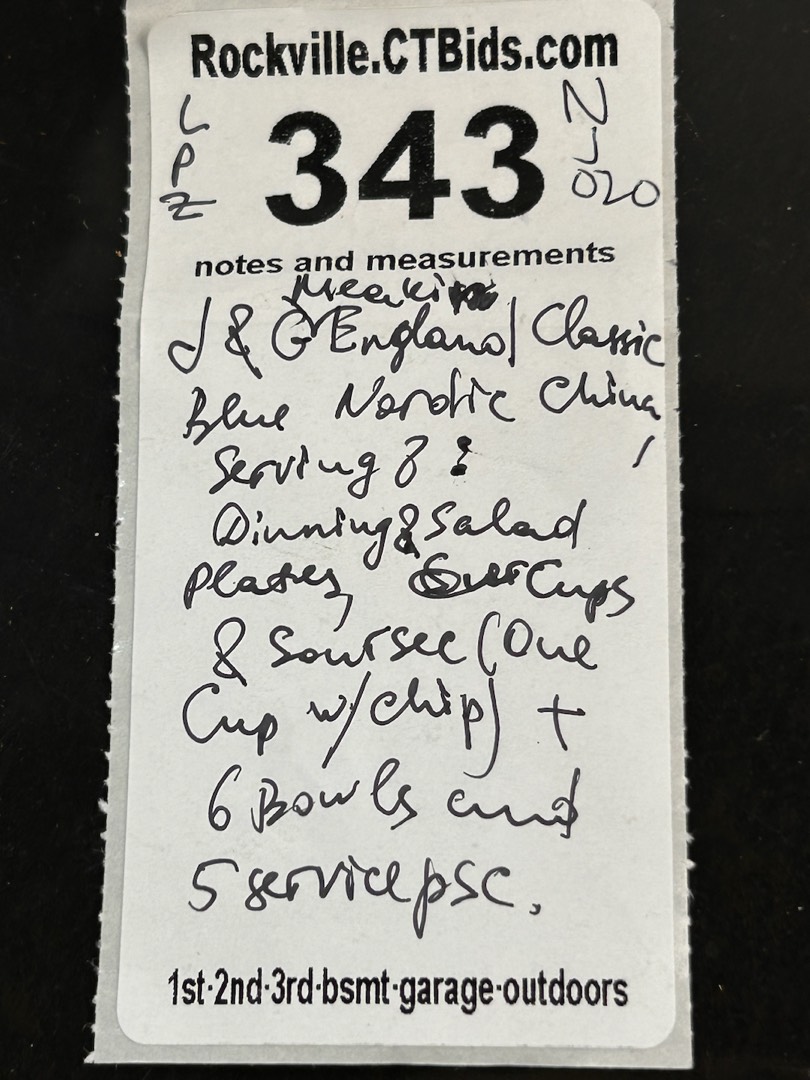 Rockville.CTBids.com
LPZ
343
notes and measurements
Meakin
J & G England/Classic
Blue Nordic China,
Serving 8:
Dinning & Salad
Plates, Cups
& Soursec (One
Cup w/chip) +
6 Bowls and
5 service psc.
1st·2nd·3rd·bsmt·garage·outdoors